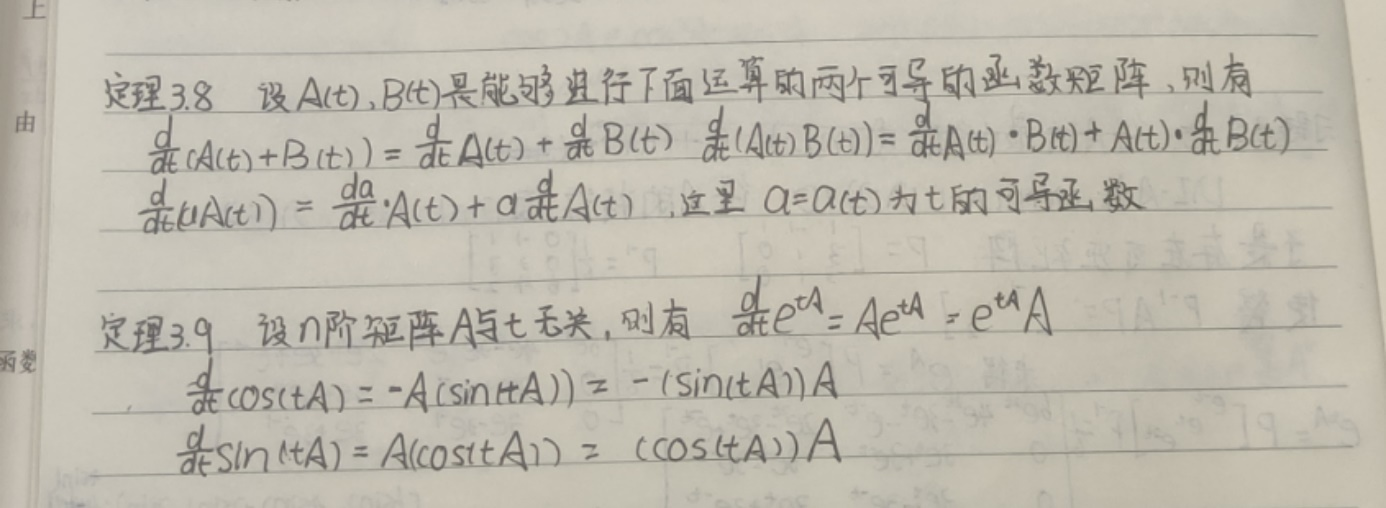 上
由
函数
定理3.8 设A(t)、B(t)是能够进行下面运算的两个可导的函数矩阵,则有
d/dt(A(t)+B(t))=d/dt A(t)+d/dt B(t) d/dt(A(t)B(t))=d/dt A(t)·B(t)+A(t)·d/dt B(t)
d/dt(aA(t))=da/dt·A(t)+a d/dt A(t),这里 a=a(t)为t的可导函数
定理3.9 设n阶矩阵A与t无关,则有 d/dt e^{tA}=Ae^{tA}=e^{tA}A
d/dt cos(tA)=-A(sin(tA))=-(sin(tA))A
d/dt sin(tA)=A(cos(tA))=(cos(tA))A